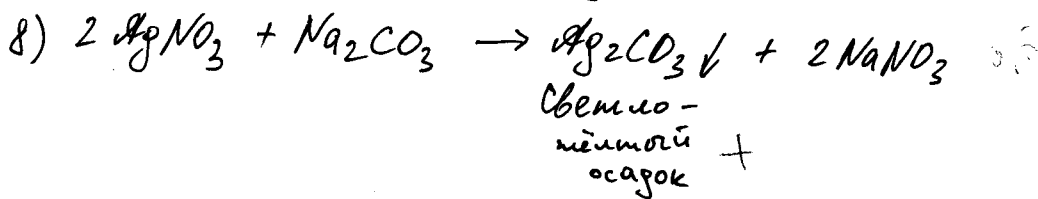 8) 2 AgNO₃ + Na₂CO₃ → Ag₂CO₃↓ + 2NaNO₃
Светло-
жёлтый +
осадок